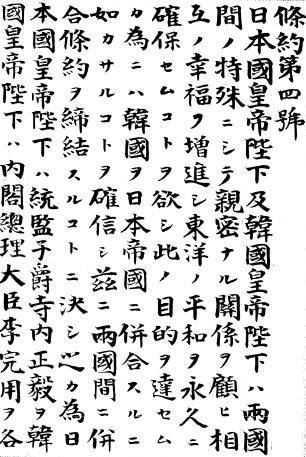 條約第四號
日本國皇帝陛下及韓國皇帝陛下ハ兩國
間ノ特殊ニシテ親密ナル關係ヲ顧ヒ相
互ノ幸福ヲ增進シ東洋ノ平和ヲ永久ニ
確保セムコトヲ欲シ此ノ目的ヲ達セム
カ為ニハ韓國ヲ日本帝國ニ併合スルニ
如カサルコトヲ確信シ茲ニ兩國間ニ併
合條約ヲ締結スルコトニ決シ之カ為日
本國皇帝陛下ハ統監子爵寺内正毅ヲ韓
國皇帝陛下ハ内閣總理大臣李完用ヲ各